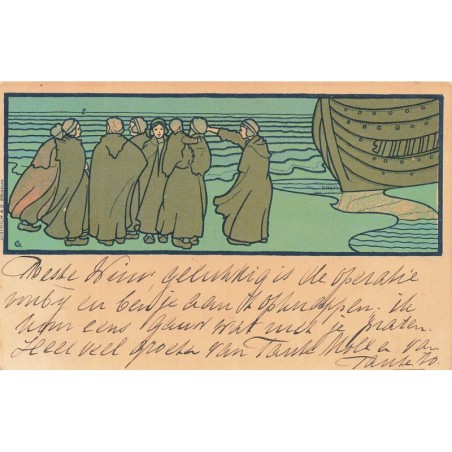 Beste Wim, gelukkig is de operatie
voorbij en ben je aan 't opknappen. ik
kom eens gauw wat met je praten.
Heel veel groeten van Tante Mol en van
Tante To.